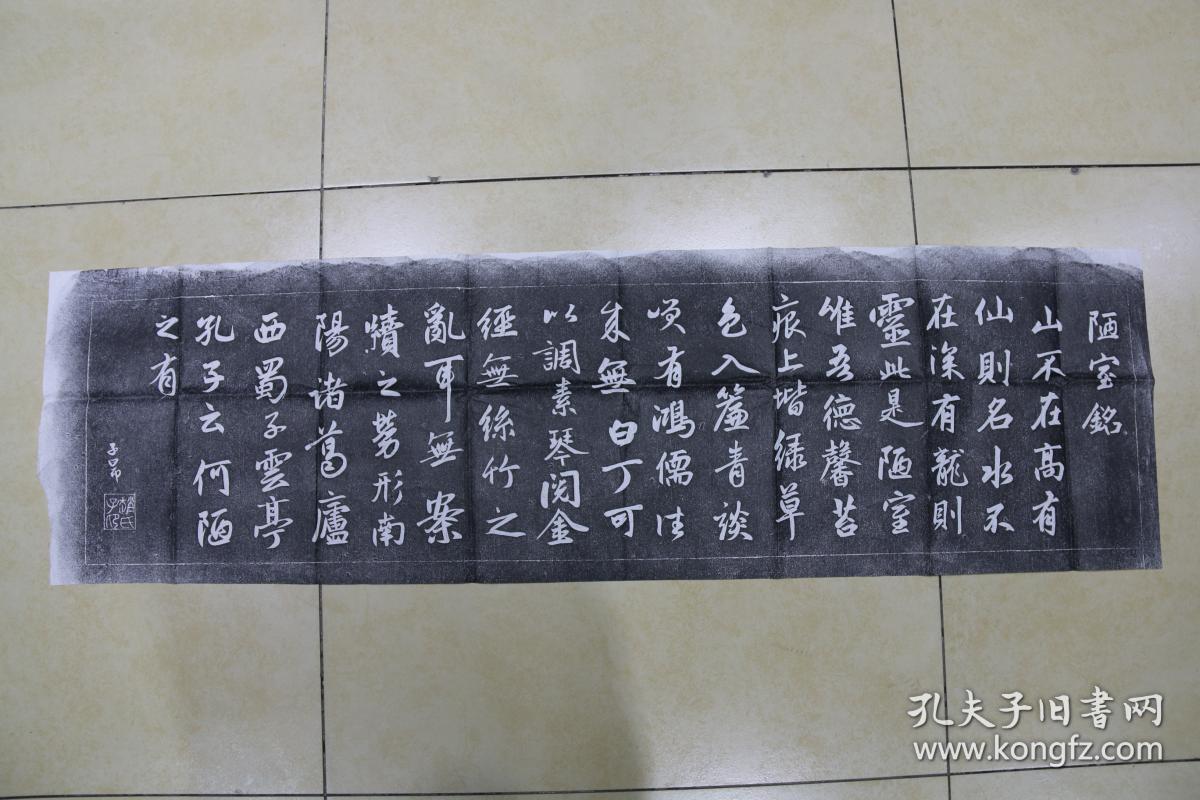 陋室銘
山不在高有
仙則名水不
在深有龍則
靈此是陋室
惟吾德馨苔
痕上堦緑草
色入簾青談
咲有鴻儒往
來無白丁可
以調素琴閱金
經無絲竹之
亂耳無案
牘之勞形南
陽諸葛廬
西蜀子雲亭
孔子云何陋
之有
子昂
趙氏子昂
孔夫子旧書网
www.kongfz.com